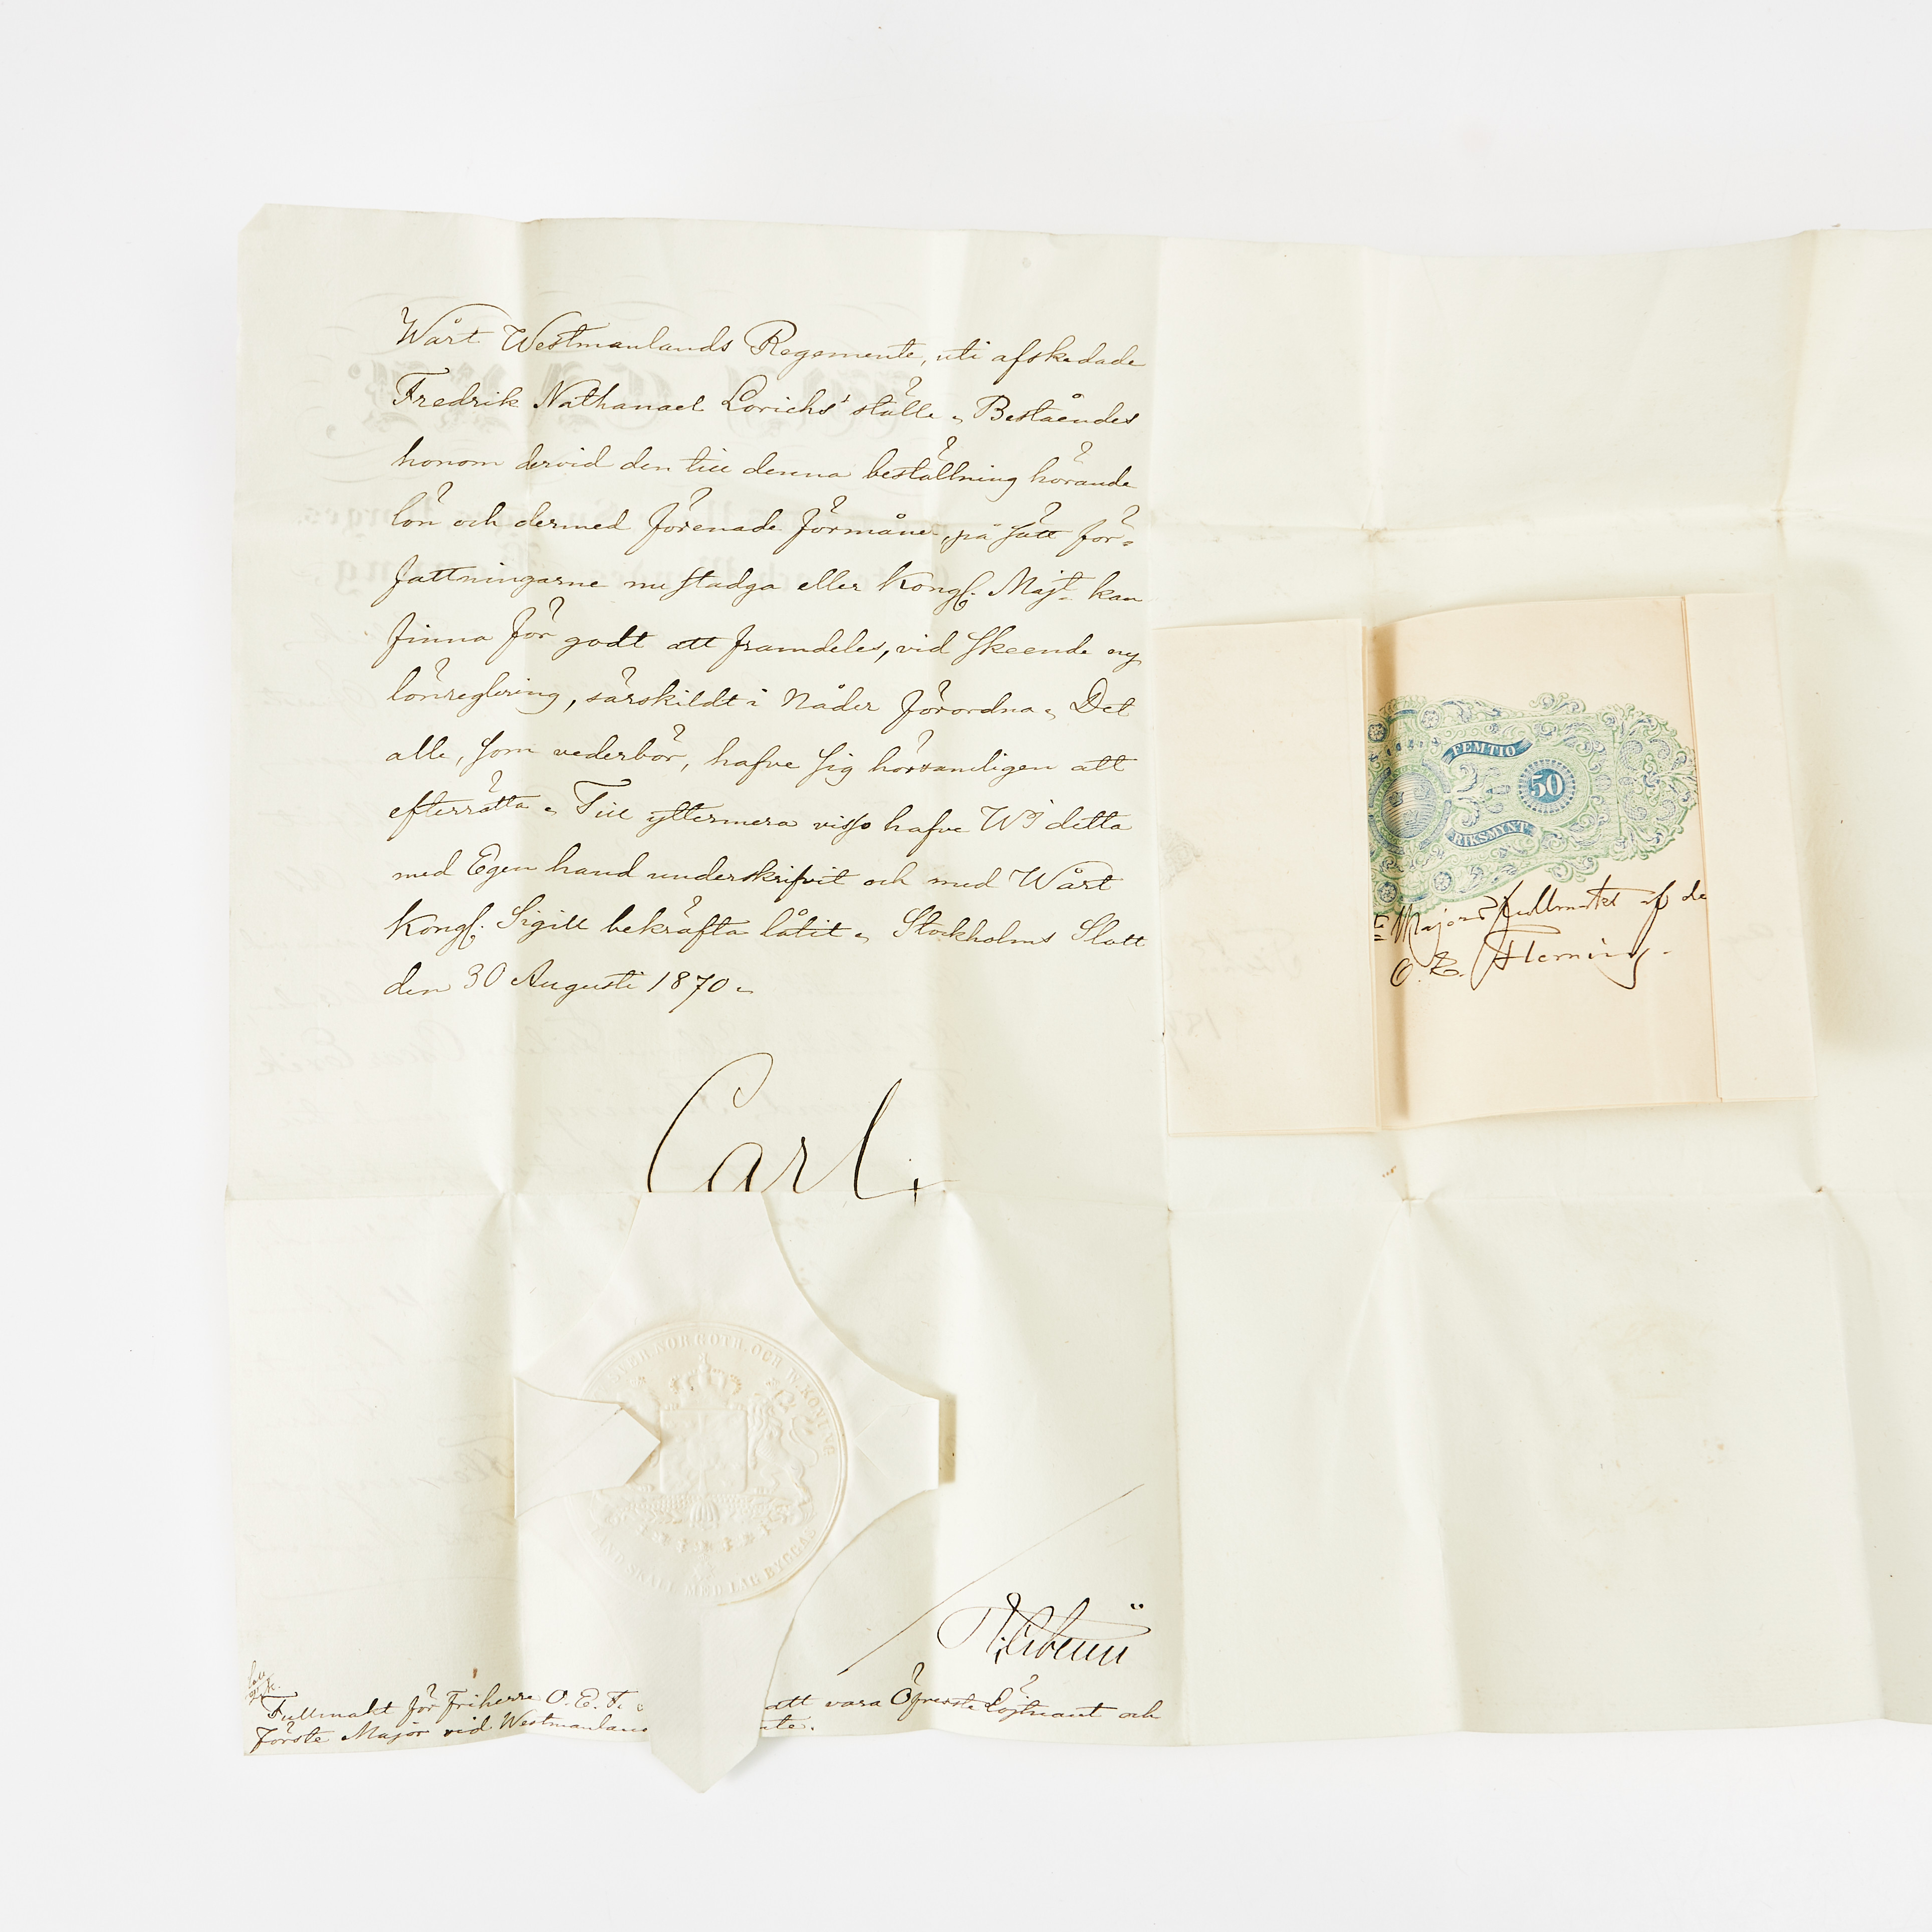 Wårt Westmanlands Regemente, uti afskedade
Fredrik Nathanael Lorichs' ställe. Beståendes
honom dervid den till denna beställning hörande
lön och dermed förenade förmåner, på sätt för-
fattningarne nu stadga eller Kongl. Maj:t kan
finna för godt att framdeles, vid skeende ny
lönreglering, särskildt i Nåder förordna. Det
alle, som vederbör, hafve sig hörsamligen att
efterrätta. Till yttermera visso hafve Wi detta
med Egen hand underskrifvit och med Wårt
Kongl. Sigill bekräfta låtit. Stockholms Slott
den 30 Augusti 1870.
Carl.
NOR. GÖTH. OCH W. KONUNG
LAND SKALL MED LAG BYGGAS
Fullmakt för Friherre O. E. F. att vara Öfverste Löjtnant och
Förste Major vid Westmanlands
FEMTIO
50
RIKSMYNT
Majors fullmakt af de
O. E. Fleming.